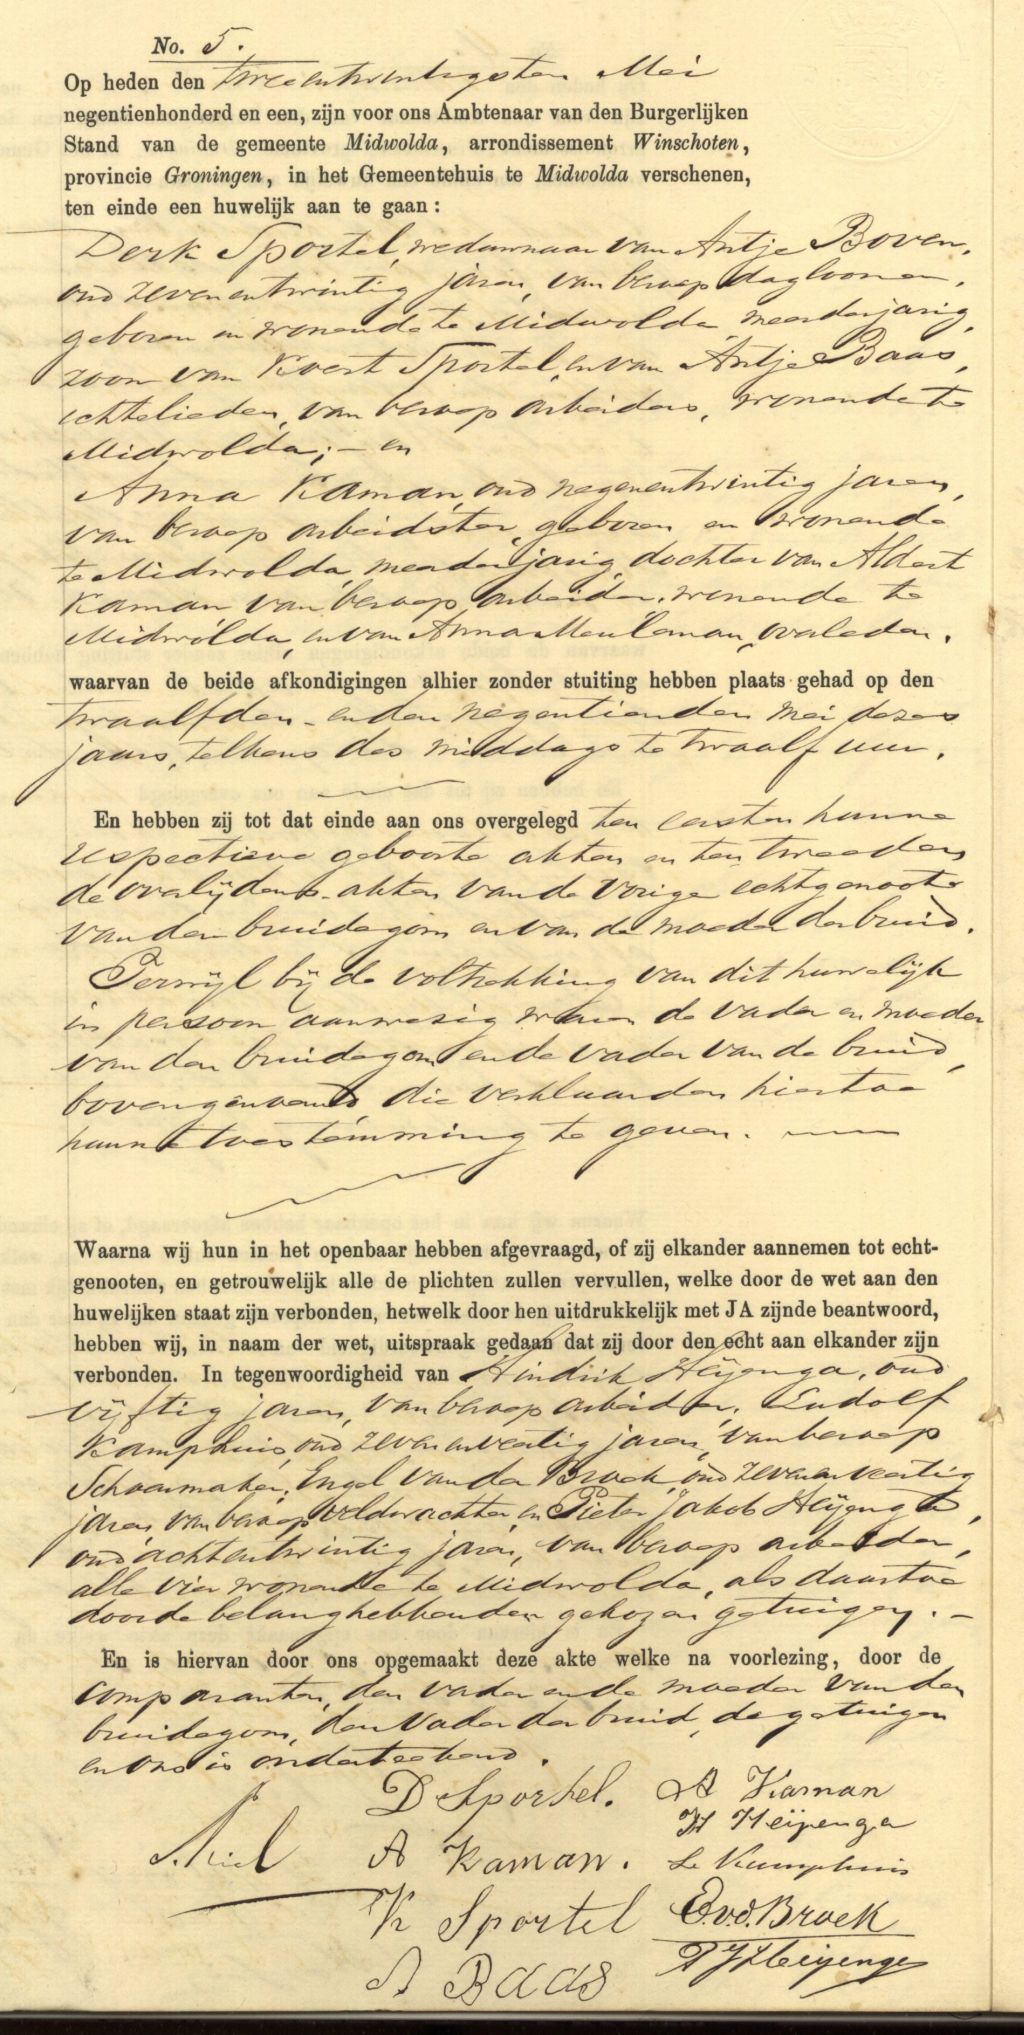 No. 5.
Op heden den tweeentwintigsten Mei
negentienhonderd en een, zijn voor ons Ambtenaar van den Burgerlijken
Stand van de gemeente Midwolda, arrondissement Winschoten,
provincie Groningen, in het Gemeentehuis te Midwolda verschenen,
ten einde een huwelijk aan te gaan:
Derk Sportel, weduwnaar van Antje Boven,
oud zevenentwintig jaren, van beroep daglooner,
geboren en wonende te Midwolda, meerderjarig,
zoon van Koert Sportel, en van Antje Baas,
echtelieden, van beroep arbeiders, wonende te
Midwolda; – en
Anna Kaman, oud negenentwintig jaren,
van beroep arbeidster, geboren en wonende
te Midwolda, meerderjarig, dochter van Aldert
Kaman van beroep arbeider, wonende te
Midwolda, en van Anna Meuleman, overleden.
waarvan de beide afkondigingen alhier zonder stuiting hebben plaats gehad op den
twaalfden en den negentienden mei dezes
jaars, telkens des middags te twaalf uur.
En hebben zij tot dat einde aan ons overgelegd ten eersten hunne
respectieve geboorte akten en ten tweeden
de overlijdens-akten van de vorige echtgenoote
van den bruidegom en van de moeder der bruid.
Terwijl bij de voltrekking van dit huwelijk
in persoon aanwezig waren de vader en moeder
van den bruidegom en de vader van de bruid,
bovengenoemd, die verklaarden hiertoe
hunne toestemming te geven.
Waarna wij hun in het openbaar hebben afgevraagd, of zij elkander aannemen tot echt-
genooten, en getrouwelijk alle de plichten zullen vervullen, welke door de wet aan den
huwelijken staat zijn verbonden, hetwelk door hen uitdrukkelijk met JA zijnde beantwoord,
hebben wij, in naam der wet, uitspraak gedaan dat zij door den echt aan elkander zijn
verbonden. In tegenwoordigheid van Hindrik Heijenga, oud
vijftig jaren, van beroep arbeider, Ludolf
Kamphuis, oud zevenenveertig jaren, van beroep
Schoenmaker, Engel van der Broek, oud zevenenveertig
jaren, van beroep veldwachter, en Pieter Jakob Heijenga,
oud achtentwintig jaren, van beroep arbeider,
alle vier wonende te Midwolda, als daartoe
door de belanghebbenden gekozen getuigen. –
En is hiervan door ons opgemaakt deze akte welke na voorlezing, door de
comparanten, den vader en de moeder van den
bruidegom, den vader der bruid, de getuigen
en ons is onderteekend.
D Sportel. A Kaman
H Heijenga
A Kaman. L Kamphuis
K Sportel E.v.d. Broek
A Baas P J Heijenga